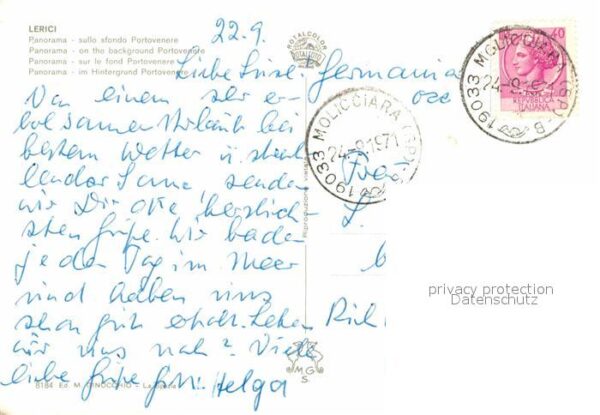 LERICI
Panorama - sullo sfondo Portovenere
Panorama - on the background Portovenere
Panorama - sur le fond Portovenere
Panorama - im Hintergrund Portovene
22.9.
ROTALCOLOR
Liebe Germania
Von einem sehr er-
holsamen Urlaub bei
bestem Wetter u. strah
lender Sonne senden
wir Dir alle herzlich-
sten Grüße. Wir baden
jeden Tag im Meer
und haben uns
schon gut erholt. Sehen
wir uns noch? Viele
liebe Grüße Helga
Frau
40
REPUBBLICA
ITALIANA
19033 MOLICCIARA (SP) B
24-9
19033 MOLICCIARA (SP)
24-9.1971
Riproduzione vietata
M G
S
8184 Ed. M. - La
privacy protection
Datenschutz